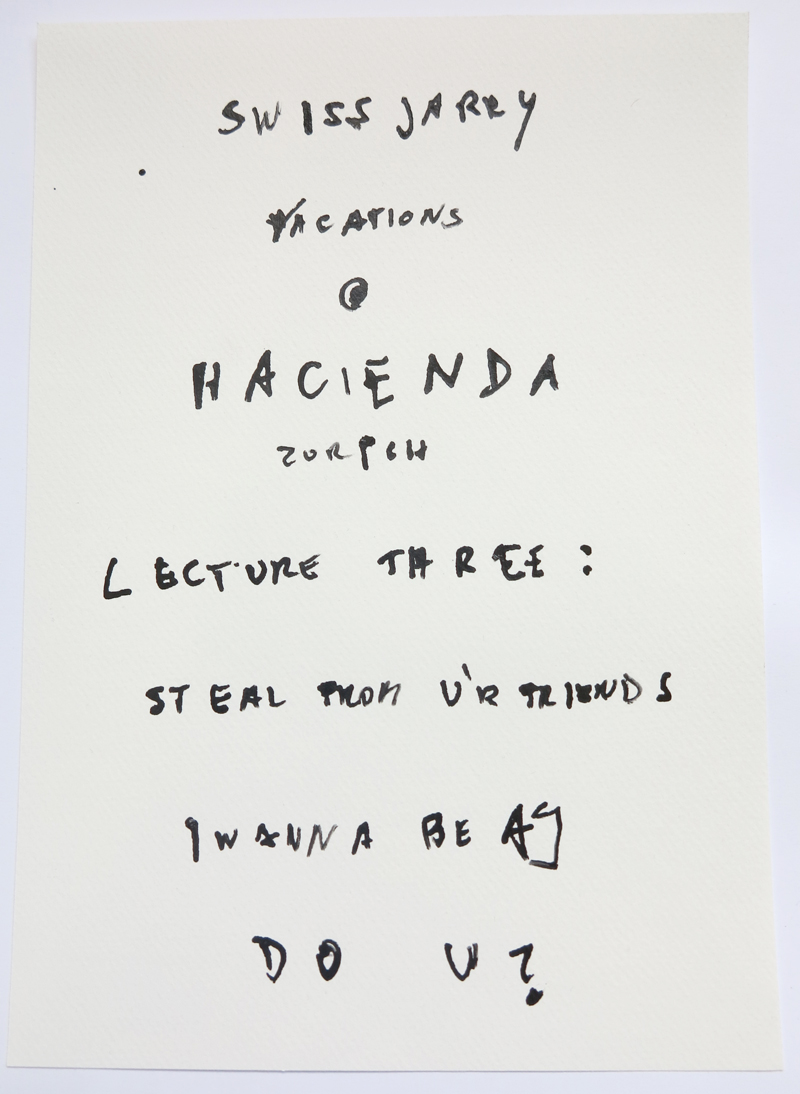 SWISS JARRY
VACATIONS
@
HACIENDA
ZURICH
LECTURE THREE:
STEAL FROM U'R FRIENDS
I WANNA BE
DO U?